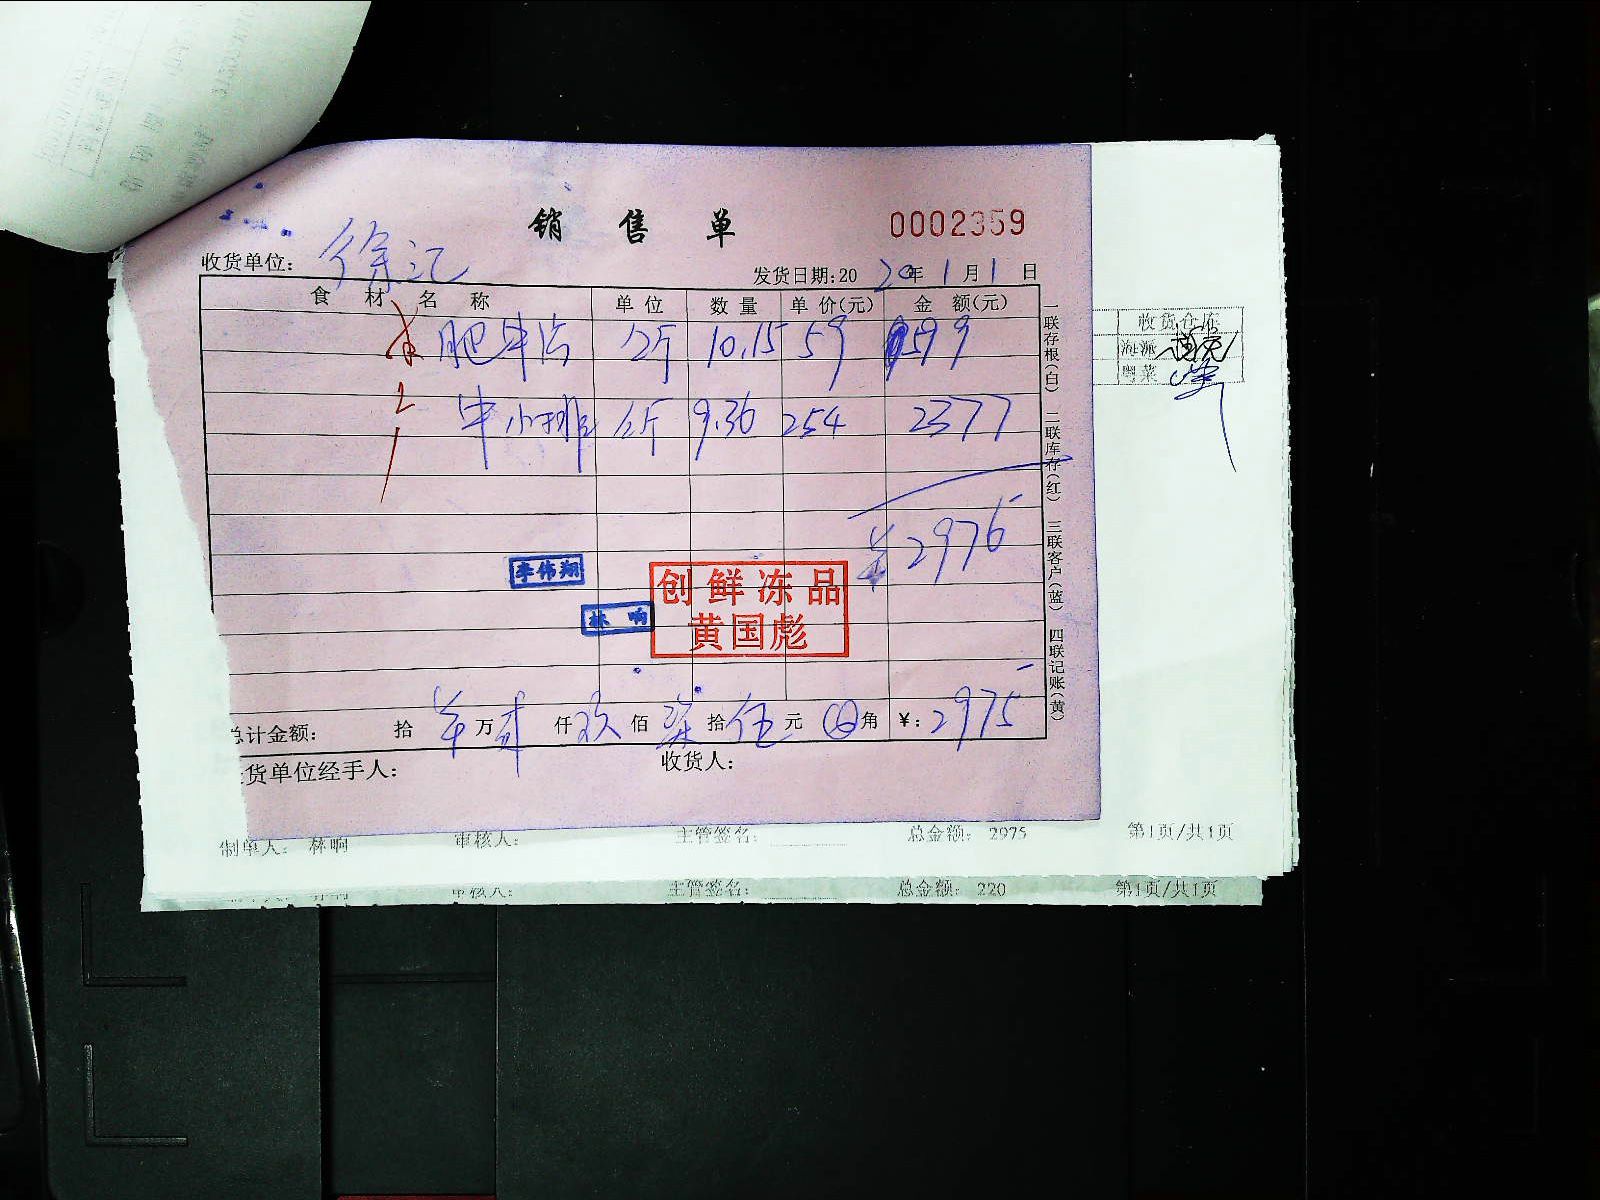 销售单
0002359
收货单位: 徐汇
发货日期:2020年1月1日
食材名称 单位 数量 单价(元) 金额(元)
肥牛 公斤 10.15 59 599
牛小排 公斤 9.36 254 2377
2976
李伟翔
林响
创鲜冻品
黄国彪
总计金额: 拾 万贰仟玖佰柒拾伍元 角 ¥: 2975
货单位经手人: 收货人:
一联存根(白) 二联库存(红) 三联客户(蓝) 四联记账(黄)
收货仓库
海派
粤菜
制单人: 林响 审核人: 主管签名: 总金额: 2975 第1页/共1页
审核人: 主管签名: 总金额: 220 第1页/共1页